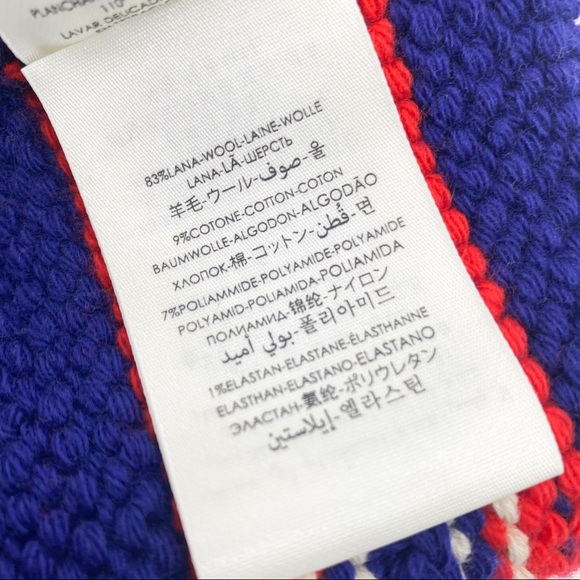 PLANCHA
110°
LAVAR DELICADA
83%LANA-WOOL-LAINE-WOLLE
LANA-LÃ-ШЕРСТЬ
羊毛-ウール-صوف-울
9%COTONE-COTTON-COTON
BAUMWOLLE-ALGODON-ALGODÃO
ХЛОПОК-棉-コットン-قُطن-면
7%POLIAMMIDE-POLYAMIDE-POLYAMIDE
POLYAMID-POLIAMIDA-POLIAMIDA
ПОЛИАМИД-锦纶-ナイロン
بولي أميد-폴리아미드
1%ELASTAN-ELASTANE-ÉLASTHANNE
ELASTHAN-ELASTANO-ELASTANO
ЭЛАСТАН-氨纶-ポリウレタン
إيلاستين-엘라스틴